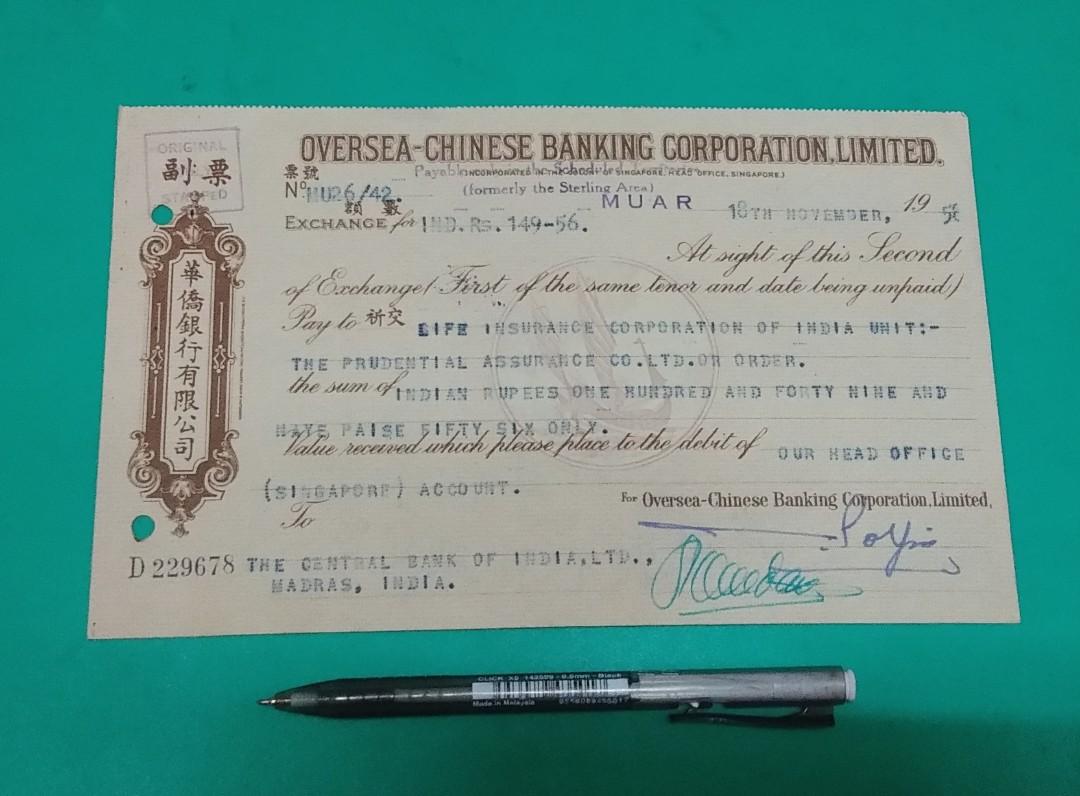 ORIGINAL
副票
STAMPED
OVERSEA-CHINESE BANKING CORPORATION, LIMITED.
(INCORPORATED IN THE COLONY OF SINGAPORE, HEAD OFFICE, SINGAPORE.)
Payable Scheduled
票號
(formerly the Sterling Area)
No. MU26/42.
MUAR 18TH NOVEMBER, 19
額 數
EXCHANGE for IND. Rs. 149-56.
At sight of this Second
of Exchange (First of the same tenor and date being unpaid)
Pay to 祈交 LIFE INSURANCE CORPORATION OF INDIA UNIT:-
THE PRUDENTIAL ASSURANCE CO.LTD.OR ORDER.
the sum of INDIAN RUPEES ONE HUNDRED AND FORTY NINE AND
NAYE PAISE FIFTY SIX ONLY.
Value received which please place to the debit of OUR HEAD OFFICE
(SINGAPORE) ACCOUNT.
For Oversea-Chinese Banking Corporation, Limited,
To
D 229678 THE CENTRAL BANK OF INDIA, LTD.,
MADRAS, INDIA.
華僑銀行有限公司
CLICK X5 142599 - 0.5mm - Black
Made in Malaysia